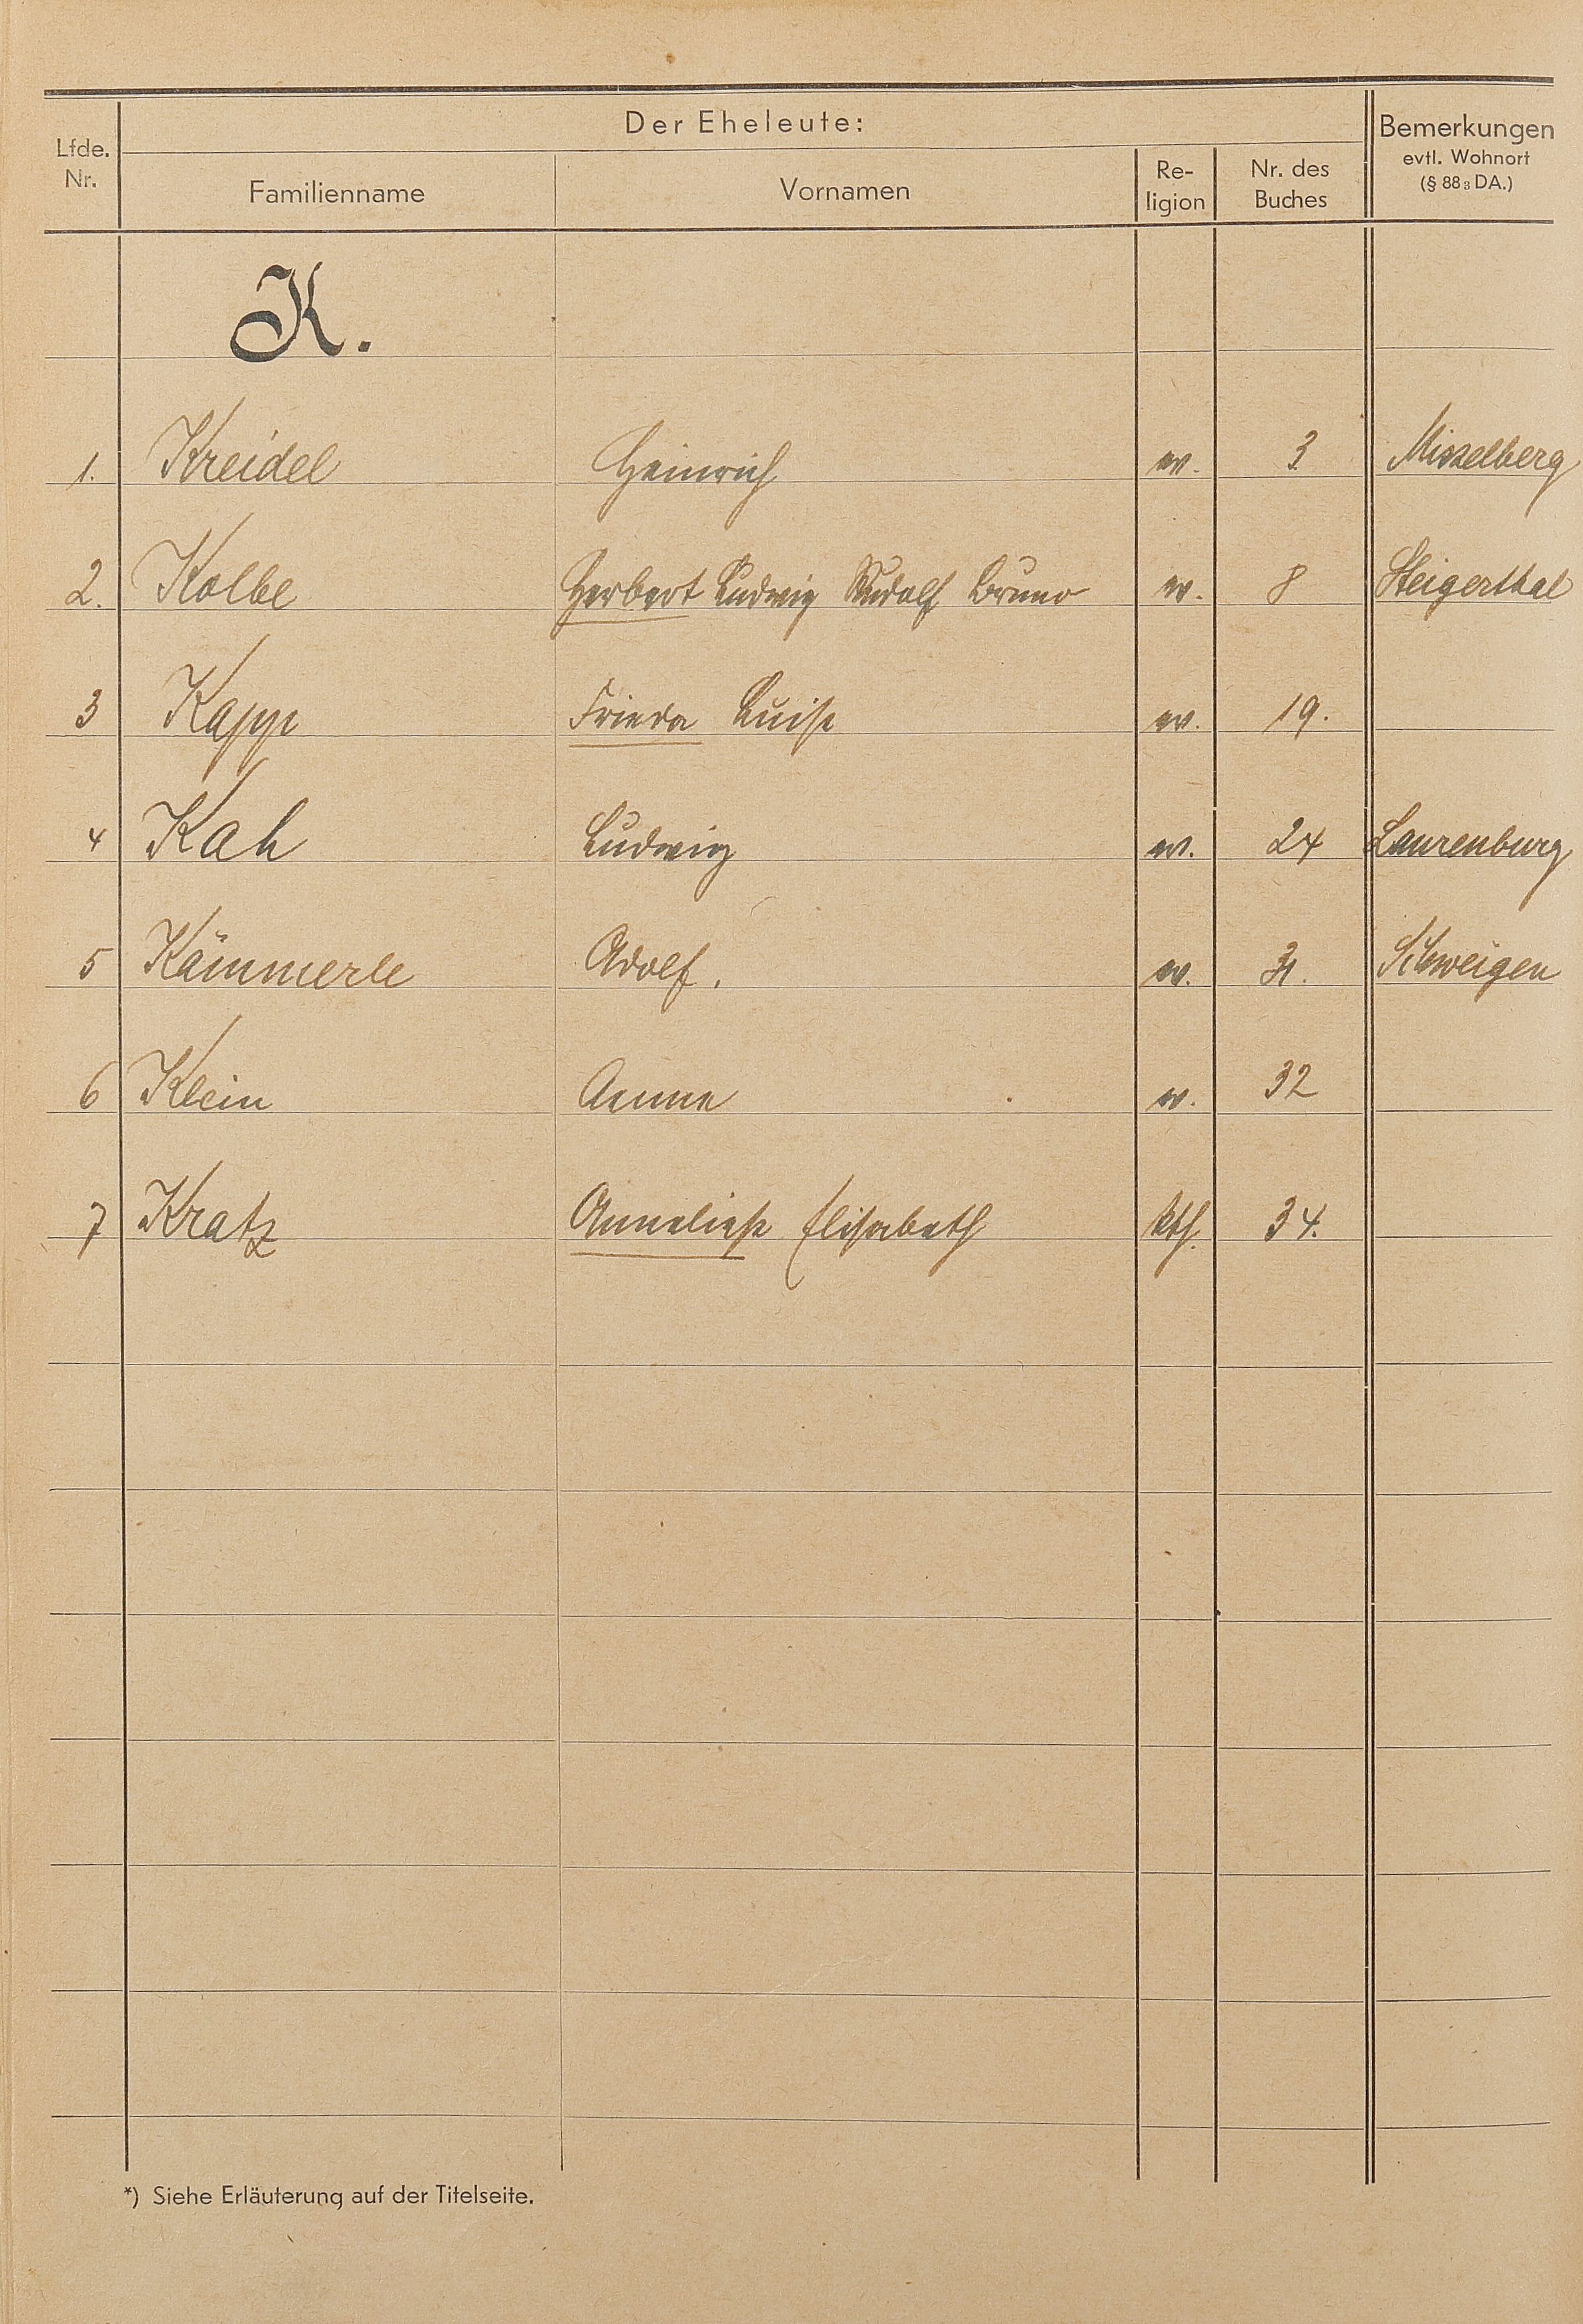 Lfde. Nr.
Der Eheleute:
Familienname
Vornamen
Re-
ligion
Nr. des
Buches
Bemerkungen
evtl. Wohnort
(§ 88 8 DA.)
K.
1. Kreidel Heinrich ev. 3 Misselberg
2. Kolbe Herbert Ludwig Rudolf Bruno ev. 8 Steigerthal
3 Kapp Frieda Luise ev. 19.
4 Kah Ludwig ev. 24 Laurenburg
5 Kämmerle Adolf. ev. 31. Schweigen
6 Klein Anna ev. 32
7 Kratz Anneliese Elisabeth kth. 34.
*) Siehe Erläuterung auf der Titelseite.